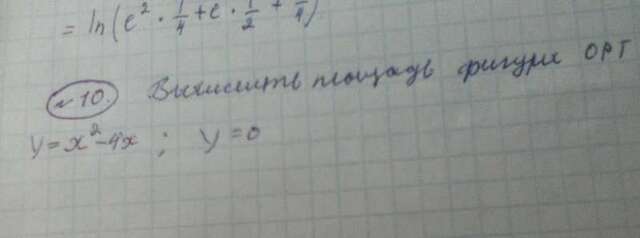 = ln(e² · 1/4 + e · 1/2 + 1/4)
№10. Вычислить площадь фигуры ОРТ
y = x² - 4x ; y = 0